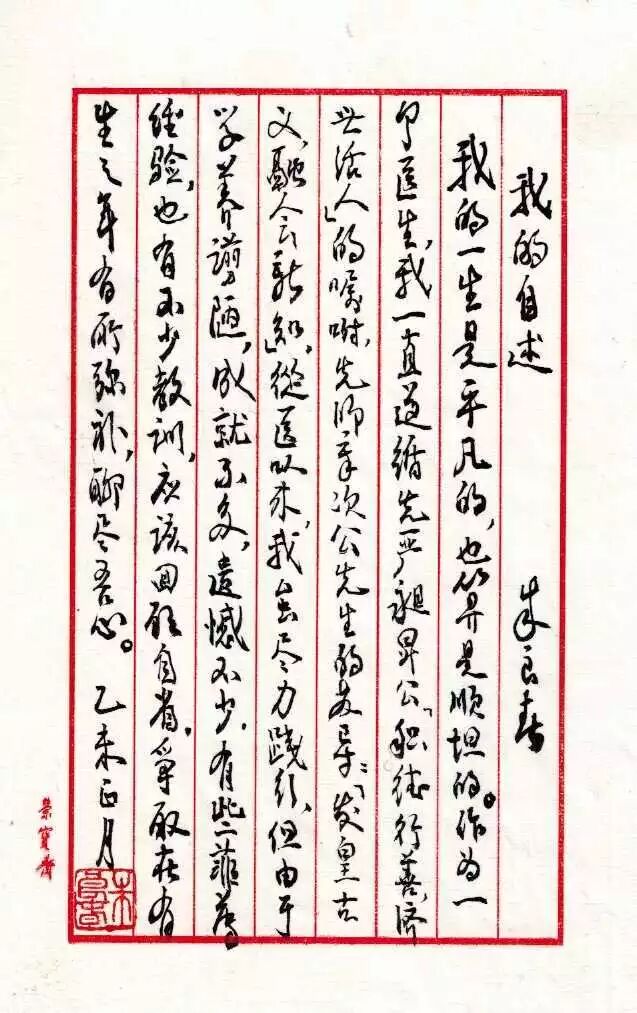 我的自述
朱良春
我的一生是平凡的,也算是顺坦的。作为一
个医生,我一直遵循先严昶昇公「积德行善,济
世活人」的嘱咐,先师章次公先生的教导:「发皇古
义,融会新知」,從医以来,我虽尽力践行,但由于
学养谫陋,成就不多,遗憾不少,有些菲薄
经验,也有不少教训,应该回顾自省,争取在有
生之年有所弥补,聊尽吾心。 乙未正月
朱良春
榮寶齋